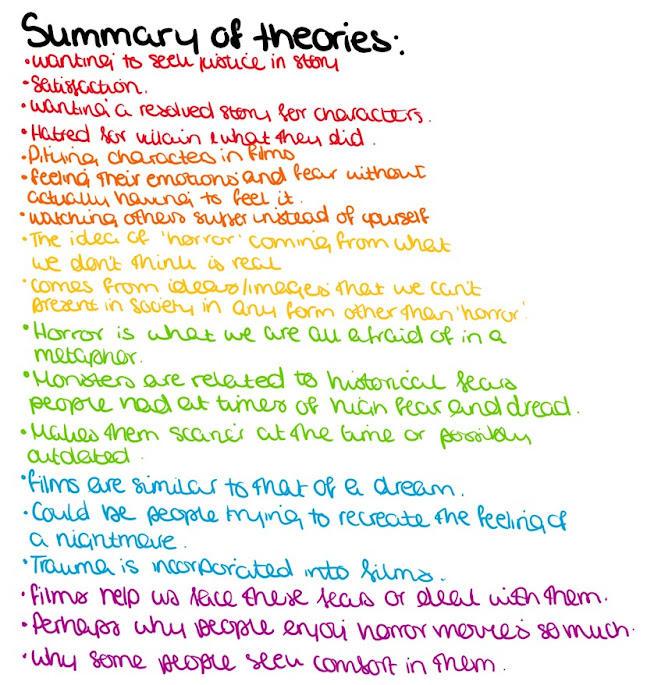 Summary of theories:
• wanting to seek justice in story
• Satisfaction.
• wanting a resolved story for characters.
• Hatred for villain & what they did.
• Pitying characters in films
• feeling their emotions and fear without
actually having to feel it.
• watching others suffer instead of yourself
• The idea of 'horror' coming from what
we don't think is real
• comes from ideas/images that we can't
present in society in any form other than 'horror'
• Horror is what we are all afraid of in a
metaphor.
• Monsters are related to historical fears
people had at times of high fear and dread.
• Makes them scarier at the time or possibly
outdated.
• films are similar to that of a dream.
• Could be people trying to recreate the feeling of
a nightmare.
• Trauma is incorporated into films.
• films help us face these fears or deal with them.
• Perhaps why people enjoy horror movies so much.
• why some people seek comfort in them.